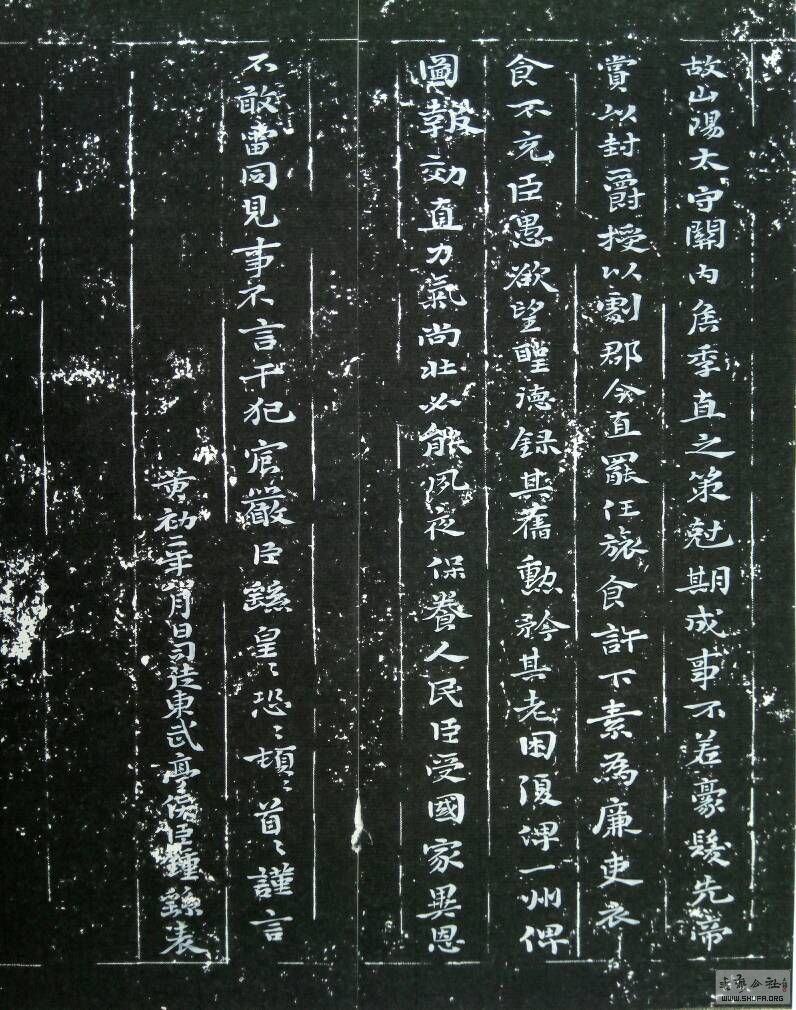 故山陽太守關內侯季直之策尅期成事不差豪髮先帝
賞以封爵授以劇郡今直罷任旅食許下素為廉吏衣
食不充臣愚欲望聖德録其舊勳矜其老困復俾一州俾
圖報効直力氣尚壯必能夙夜保養人民臣受國家異恩
不敢雷同見事不言干犯宸嚴臣繇皇〻恐〻頓〻首〻謹言
黃初二年八月日司徒東武亭侯臣鍾繇表
WWW.SHUFA.ORG